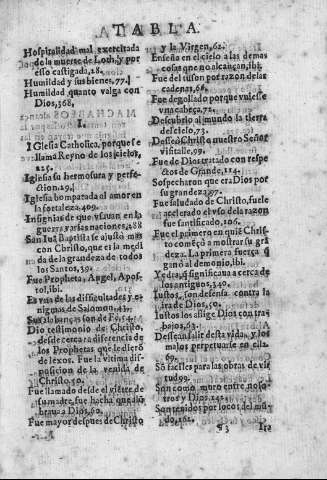 TABLA.
Hospitalidad mal exercitada
de la muerte de Loth, y por
esso castigada, 28.
Humildad y sus bienes, 77.
Humildad quanto valga con
Dios, 368,
I.
IGlesia Catholica, porque se
llama Reyno de los cielos,
225.
Iglesia su hermosura y perfe-
ction, 29.
Iglesia
la fortaleza, 409.
Insignias de que vsauan en la
guerra varias naciones, 288
San Iuã Baptista se ajustò mas
con Christo, que es la medi
da de la grandeza de todos
los Santos, 39.
Fue Propheta, Angel, Apos-
tol, ibi.
Es vna de las dificultades y e-
nigmas de Salomon, 43.
Sus alabanças son de Fè, 54.
Dio testimonio de Christo,
desde cerca a diferencia de
los Prophetas que le dierõ
de lexos. Fue la vltima dis-
posicion de la venida de
Christo, 50.
Fue llamado desde el viẽtre de
su madre, fue hacha que alũ
braua a Dios, 60.
Fue mayor despues de Christo
y la Virgen, 62.
Enseña en el cielo a las demas
cosas que no alcançan, ibi.
Fue del tuson por razon de las
cadenas, 68.
Fue degollado porque vuiesse v
na cabeça, 72.
Descubrio al mundo la tierra
del cielo, 73.
Desseò Christo nuestro Señor
visitalle, 99.
Fue de Dios tratado con respe
ctos de Grande, 114.
Sospecharon que era Dios por
su grandeza, 97.
Fue saludado de Christo, fuele
acelerado el vso de la razon
fue santificado, 106.
Fue el primero en quiẽ Chris-
to començò a mostrar su grã
deza. La primera fuerça q̃
ganò al demonio, ibi.
Yedra, q̃ significaua cerca de los
antiguos, 340.
Iustos, son defensa contra la
ira de Dios, 50.
Iustos los aflige Dios con tra-
bajos, 63.
Dessean salir desta vida, y los
malos perpetuarse en ella
69.
Sõ faciles para las obras de vir
tud, 99.
Son como muro entre noso-
tros y Dios, 142.
Son tenidos por locos del mũ-
do, 162.